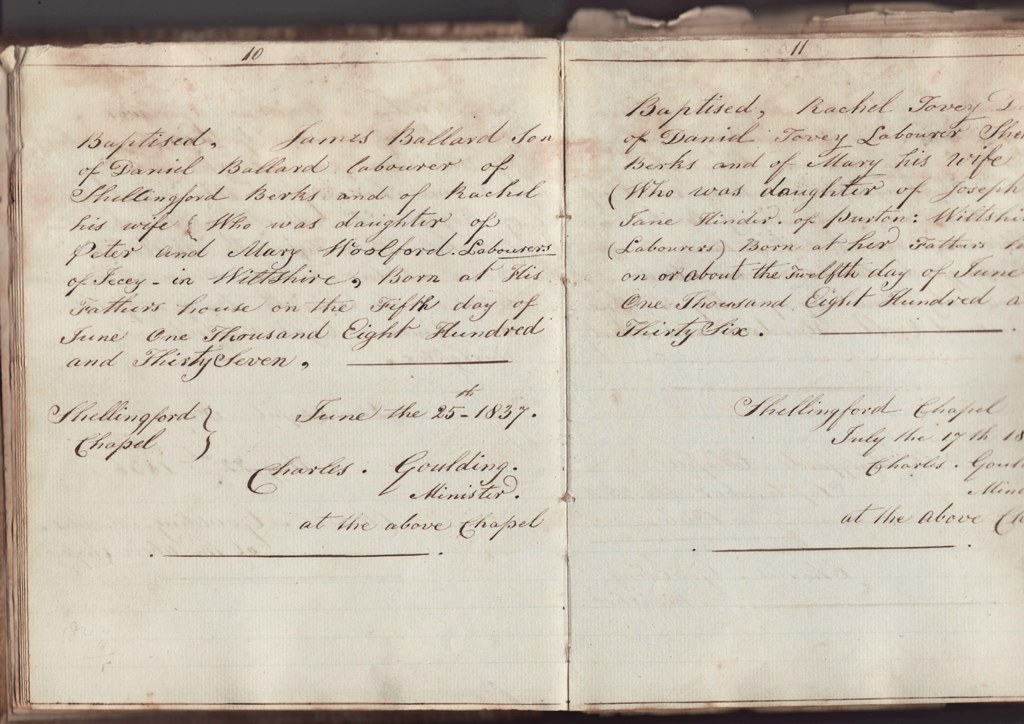 10
Baptised, James Ballard Son
of Daniel Ballard labourer of
Shellingford Berks and of Rachel
his wife (Who was daughter of
Peter and Mary Woolford Labourers
of Jecey - in Wiltshire, Born at His
Fathers house on the Fifth day of
June One Thousand Eight Hundred
and Thirty Seven,
Shellingford
Chapel
June the 25th - 1837.
Charles. Goulding.
Minister.
at the above Chapel
11
Baptised, Rachel Tovey D
of Daniel Tovey Labourer She
Berks and of Mary his wife
(Who was daughter of Joseph
Jane Hinder. of Purton: Wiltshi
(Labourers) Born at her Fathers ho
on or about the Twelfth day of June
One Thousand Eight Hundred a
Thirty Six.
Shellingford Chapel
July the 17th 18
Charles. Goul
Mini
at the above Ch